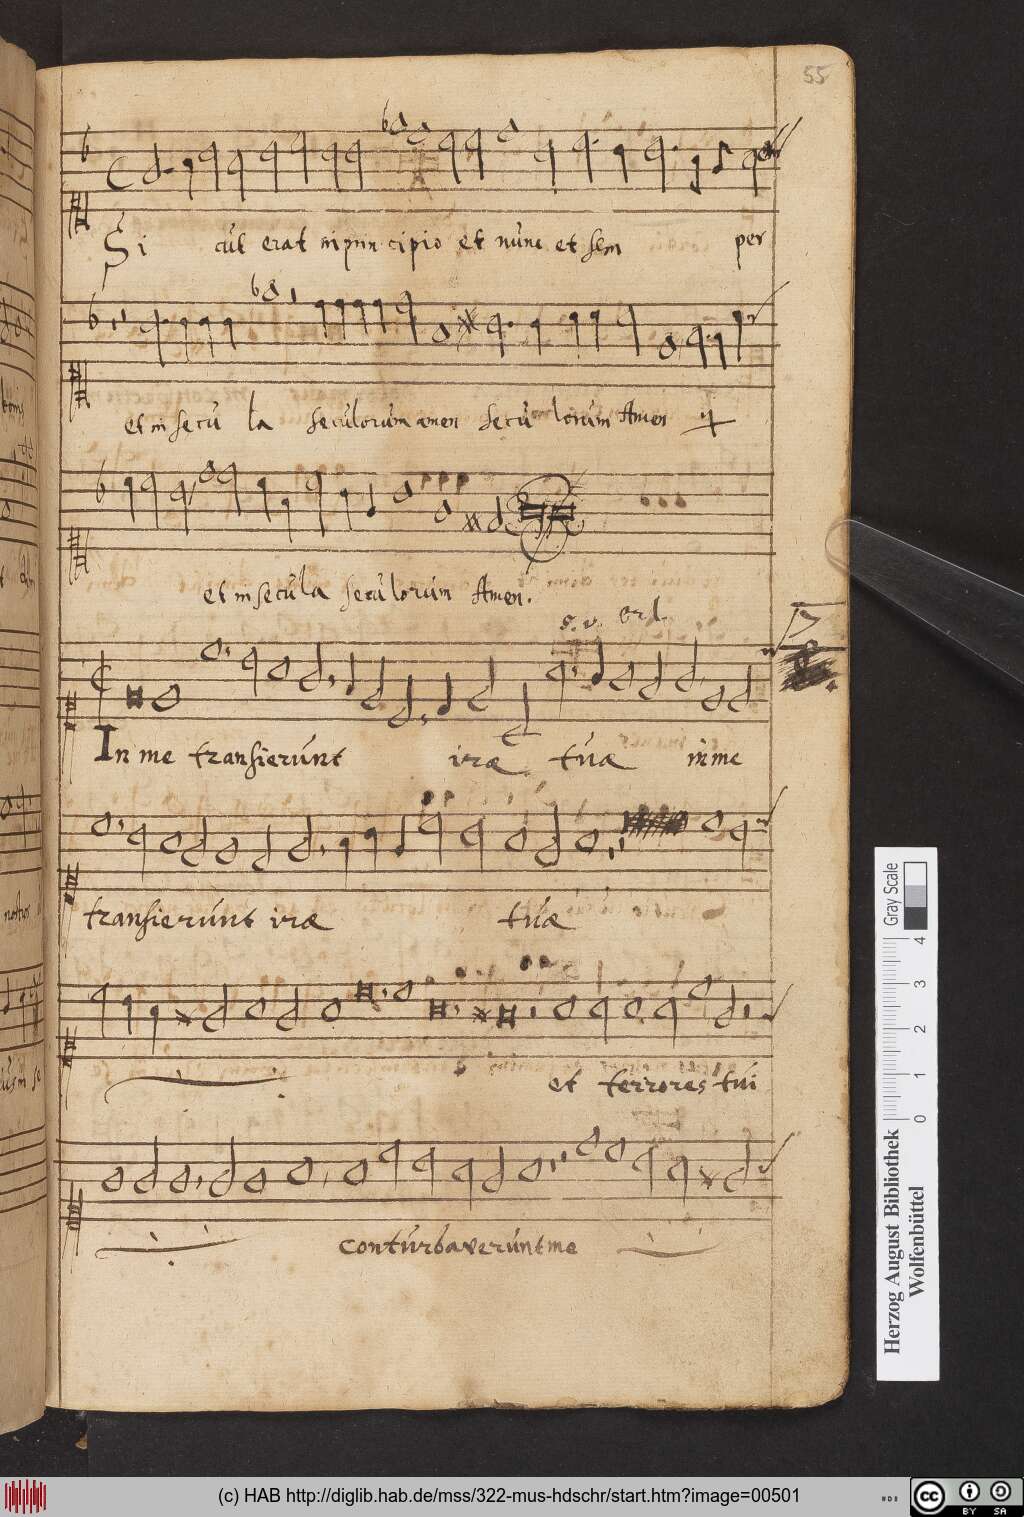 55
Si cut erat in prin cipio et nunc et sem per
et in secu la seculorum amen secu lorum Amen
et in secula seculorum Amen.
5. v.
In me transierunt iræ tuæ in me
transierunt iræ tuæ
et terrores tui
Conturbaverunt me
Gray Scale
4
3
2
1
0
Herzog August Bibliothek
Wolfenbüttel
(c) HAB http://diglib.hab.de/mss/322-mus-hdschr/start.htm?image=00501
cc
BY SA